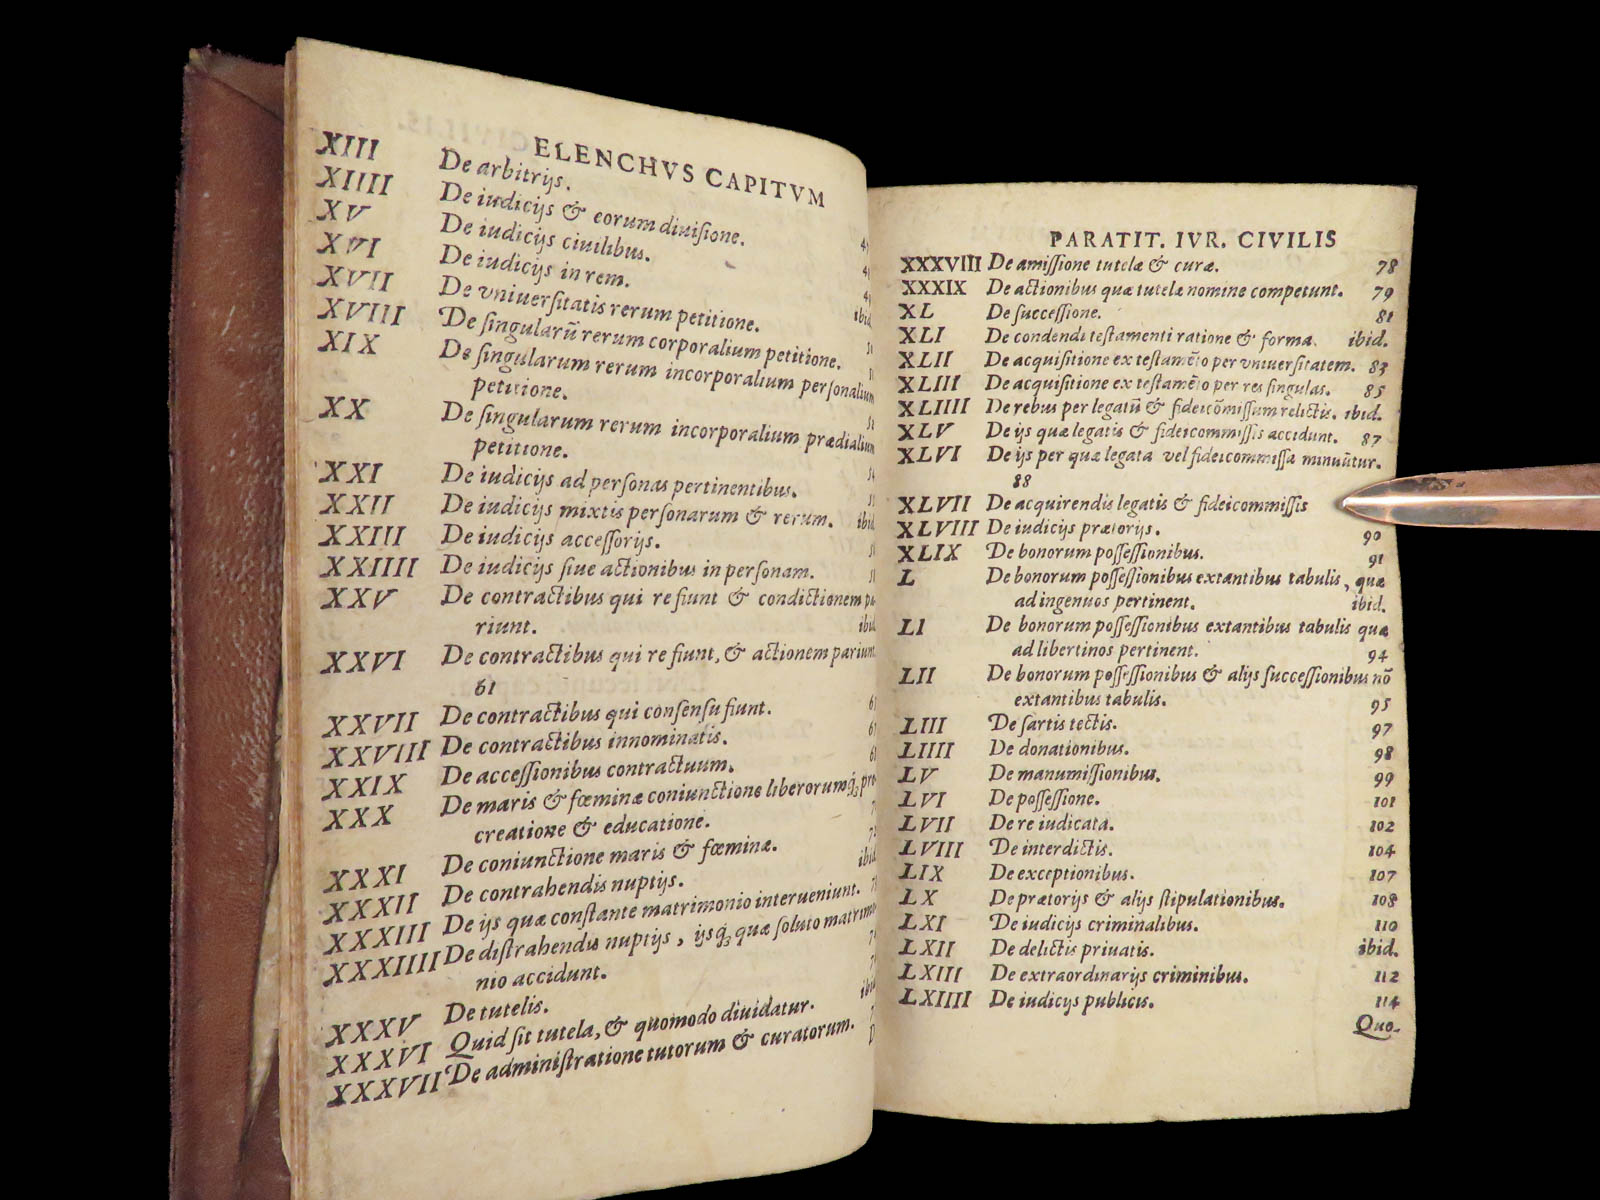 ELENCHVS CAPITVM
XIII De arbitrijs.
XIIII De iudicijs & eorum diuiſione.
XV De iudicijs ciuilibus.
XVI De iudicijs in rem.
XVII De vniuerſitatis rerum petitione. ibid
XVIII De ſingularũ rerum corporalium petitione.
XIX De ſingularum rerum incorporalium perſonalium
petitione.
XX De ſingularum rerum incorporalium prædialium
petitione.
XXI De iudicijs ad perſonas pertinentibus.
XXII De iudicijs mixtis perſonarum & rerum. ibid
XXIII De iudicijs acceſſorijs.
XXIIII De iudicijs ſiue actionibus in perſonam.
XXV De contractibus qui re fiunt & condictionem pa-
riunt. ibid
XXVI De contractibus qui re fiunt, & actionem pariunt.
61
XXVII De contractibus qui conſenſu fiunt.
XXVIII De contractibus innominatis.
XXIX De acceſſionibus contractuum.
XXX De maris & fœminæ coniunctione liberorumq́; pro-
creatione & educatione.
XXXI De coniunctione maris & fœminæ. ibid
XXXII De contrahendis nuptijs.
XXXIII De ijs quæ conſtante matrimonio interueniunt.
XXXIIII De diſtrahendis nuptijs, ijsq́; quæ ſoluto matrimo
nio accidunt.
XXXV De tutelis. ibid
XXXVI Quid ſit tutela, & quomodo diuidatur.
XXXVII De adminiſtratione tutorum & curatorum.
PARATIT. IVR. CIVILIS
XXXVIII De amiſſione tutelæ & curæ. 78
XXXIX De actionibus quæ tutelæ nomine competunt. 79
XL De ſucceſſione. 81
XLI De condendi teſtamenti ratione & forma. ibid.
XLII De acquiſitione ex teſtamẽto per vniuerſitatem. 83
XLIII De acquiſitione ex teſtamẽto per res ſingulas. 85
XLIIII De rebus per legatũ & fideicõmiſſum relictis. ibid.
XLV De ijs quæ legatis & fideicommiſſis accidunt. 87
XLVI De ijs per quæ legata vel fideicommiſſa minuũtur.
88
XLVII De acquirendis legatis & fideicommiſſis
XLVIII De iudicijs prætorijs. 90
XLIX De bonorum poſſeſſionibus. 91
L De bonorum poſſeſſionibus extantibus tabulis, quæ
ad ingenuos pertinent. ibid.
LI De bonorum poſſeſſionibus extantibus tabulis quæ
ad libertinos pertinent. 94
LII De bonorum poſſeſſionibus & alijs ſucceſſionibus nõ
extantibus tabulis. 95
LIII De ſartis tectis. 97
LIIII De donationibus. 98
LV De manumiſſionibus. 99
LVI De poſſeſſione. 101
LVII De re iudicata. 102
LVIII De interdictis. 104
LIX De exceptionibus. 107
LX De prætorijs & alijs ſtipulationibus. 108
LXI De iudicijs criminalibus. 110
LXII De delictis priuatis. ibid.
LXIII De extraordinarijs criminibus. 112
LXIIII De iudicijs publicis. 114
Quo-